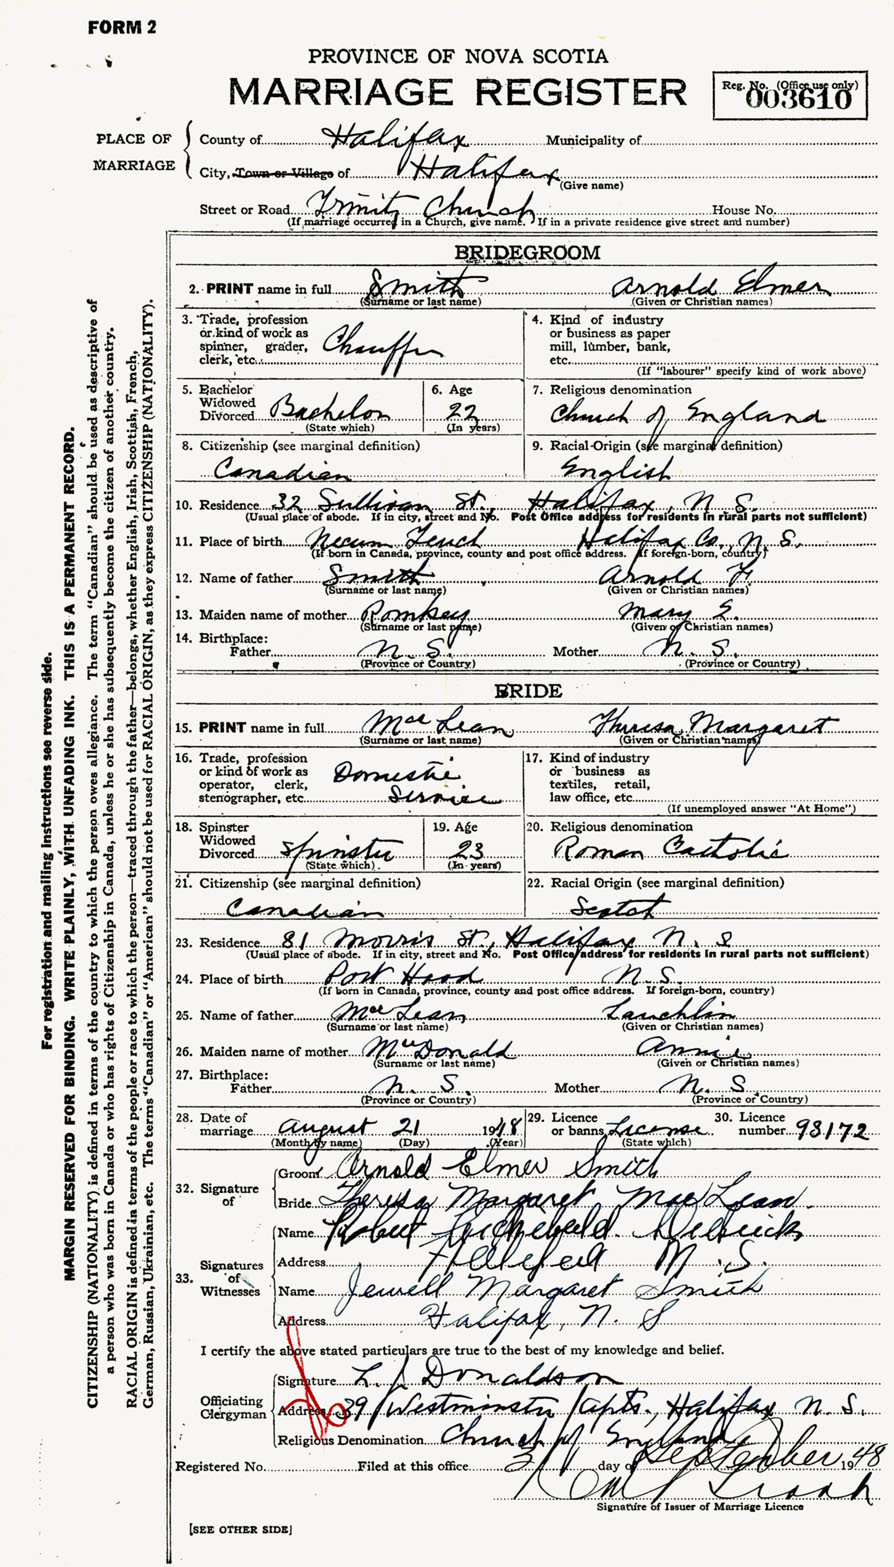 FORM 2
PROVINCE OF NOVA SCOTIA
MARRIAGE REGISTER
Reg. No. (Office use only)
003610
PLACE OF MARRIAGE
County of Halifax Municipality of
City, Town or Village of Halifax
(Give name)
Street or Road Trinity Church House No.
(If marriage occurred in a Church, give name. If in a private residence give street and number)
BRIDEGROOM
2. PRINT name in full Smith Arnold Elmer
(Surname or last name) (Given or Christian names)
3. Trade, profession or kind of work as spinner, grader, clerk, etc. Chauffer
4. Kind of industry or business as paper mill, lumber, bank, etc.
(If "labourer" specify kind of work above)
5. Bachelor Widowed Divorced Bachelor
(State which)
6. Age 22
(In years)
7. Religious denomination
Church of England
8. Citizenship (see marginal definition)
Canadian
9. Racial Origin (see marginal definition)
English
10. Residence 32 Sullivan St., Halifax, N. S.
(Usual place of abode. If in city, street and No. Post Office address for residents in rural parts not sufficient)
11. Place of birth Necum Teuch Halifax Co., N. S.
(If born in Canada, province, county and post office address. If foreign-born, country)
12. Name of father Smith Arnold F.
(Surname or last name) (Given or Christian names)
13. Maiden name of mother Romkey Mary E.
(Surname or last name) (Given or Christian names)
14. Birthplace:
Father N. S. Mother N. S.
(Province or Country) (Province or Country)
BRIDE
15. PRINT name in full Mac Lean Theresa Margaret
(Surname or last name) (Given or Christian names)
16. Trade, profession or kind of work as operator, clerk, stenographer, etc. Domestic Service
17. Kind of industry or business as textiles, retail, law office, etc.
(If unemployed answer "At Home")
18. Spinster Widowed Divorced Spinster
(State which)
19. Age 23
(In years)
20. Religious denomination
Roman Catholic
21. Citizenship (see marginal definition)
Canadian
22. Racial Origin (see marginal definition)
Scotch
23. Residence 81 Morris St., Halifax N. S
(Usual place of abode. If in city, street and No. Post Office address for residents in rural parts not sufficient)
24. Place of birth Port Hood N. S.
(If born in Canada, province, county and post office address. If foreign-born, country)
25. Name of father Mac Lean Lauchlin
(Surname or last name) (Given or Christian names)
26. Maiden name of mother MacDonald Annie
(Surname or last name) (Given or Christian names)
27. Birthplace:
Father N. S. Mother N. S.
(Province or Country) (Province or Country)
28. Date of marriage August 21 1948
(Month by name) (Day) (Year)
29. Licence or banns License
(State which)
30. Licence number 93172
32. Signature of
Groom Arnold Elmer Smith
Bride Theresa Margaret MacLean.
33. Signatures of Witnesses
Name Robert
Address N. S.
Name Jewell Margaret Smith
Address Halifax, N. S
I certify the above stated particulars are true to the best of my knowledge and belief.
Officiating Clergyman
Signature L. J. Donaldson
Address 39 Westminster Apts., Halifax N. S.
Religious Denomination Church of England
Registered No. Filed at this office 3 day of September 1948
Signature of Issuer of Marriage Licence
[SEE OTHER SIDE]
For registration and mailing instructions see reverse side.
MARGIN RESERVED FOR BINDING. WRITE PLAINLY, WITH UNFADING INK. THIS IS A PERMANENT RECORD.
CITIZENSHIP (NATIONALITY) is defined in terms of the country to which the person owes allegiance. The term "Canadian" should be used as descriptive of
a person who was born in Canada or who has rights of Citizenship in Canada, unless he or she has subsequently become the citizen of another country.
RACIAL ORIGIN is defined in terms of the people or race to which the person—traced through the father—belongs, whether English, Irish, Scottish, French,
German, Russian, Ukrainian, etc. The terms "Canadian" or "American" should not be used for RACIAL ORIGIN, as they express CITIZENSHIP (NATIONALITY).